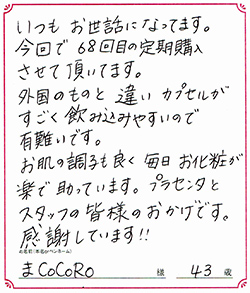 いつも お世話になってます。
今回で 68回目の定期購入
させて頂いてます。
外国のものと 違い カプセルが
すごく 飲み込みやすいので
有難いです。
お肌の調子も良く 毎日 お化粧が
楽で 助っています。プラセンタと
スタッフの 皆様の おかげです。
感謝しています!!
お名前(本名orペンネーム)
まCoCoRo 様 43 歳